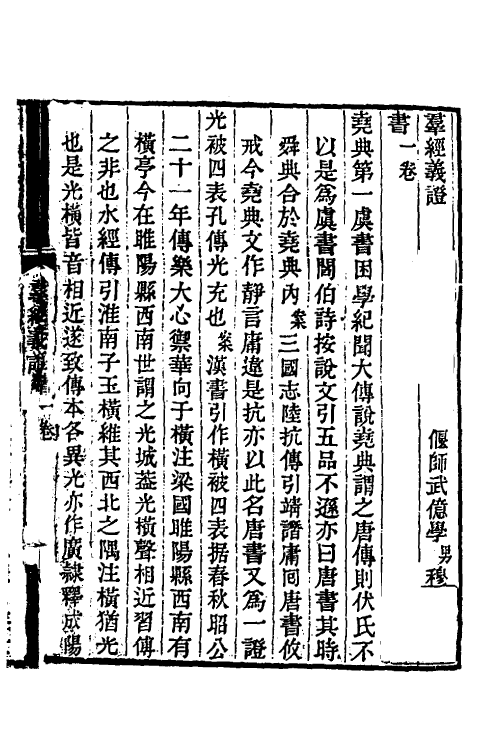 羣經義證
偃師武億學 男穆
書一卷
堯典第一虞書困學紀聞大傳說堯典謂之唐傳則伏氏不
以是爲虞書閻伯詩按說文引五品不遜亦曰唐書其時
舜典合於堯典內 案三國志陸抗傳引靖譖庸囘唐書攸
戒今堯典文作靜言庸違是抗亦以此名唐書又爲一證
光被四表孔傳光充也 案漢書引作橫被四表据春秋昭公
二十一年傳樂大心禦華向于橫注梁國睢陽縣西南有
橫亭今在睢陽縣西南世謂之光城葢光橫聲相近習傳
之非也水經傳引淮南子玉橫維其西北之隅注橫猶光
也是光橫皆音相近遂致傳本各異光亦作廣隸釋成陽
羣經義證 一卷